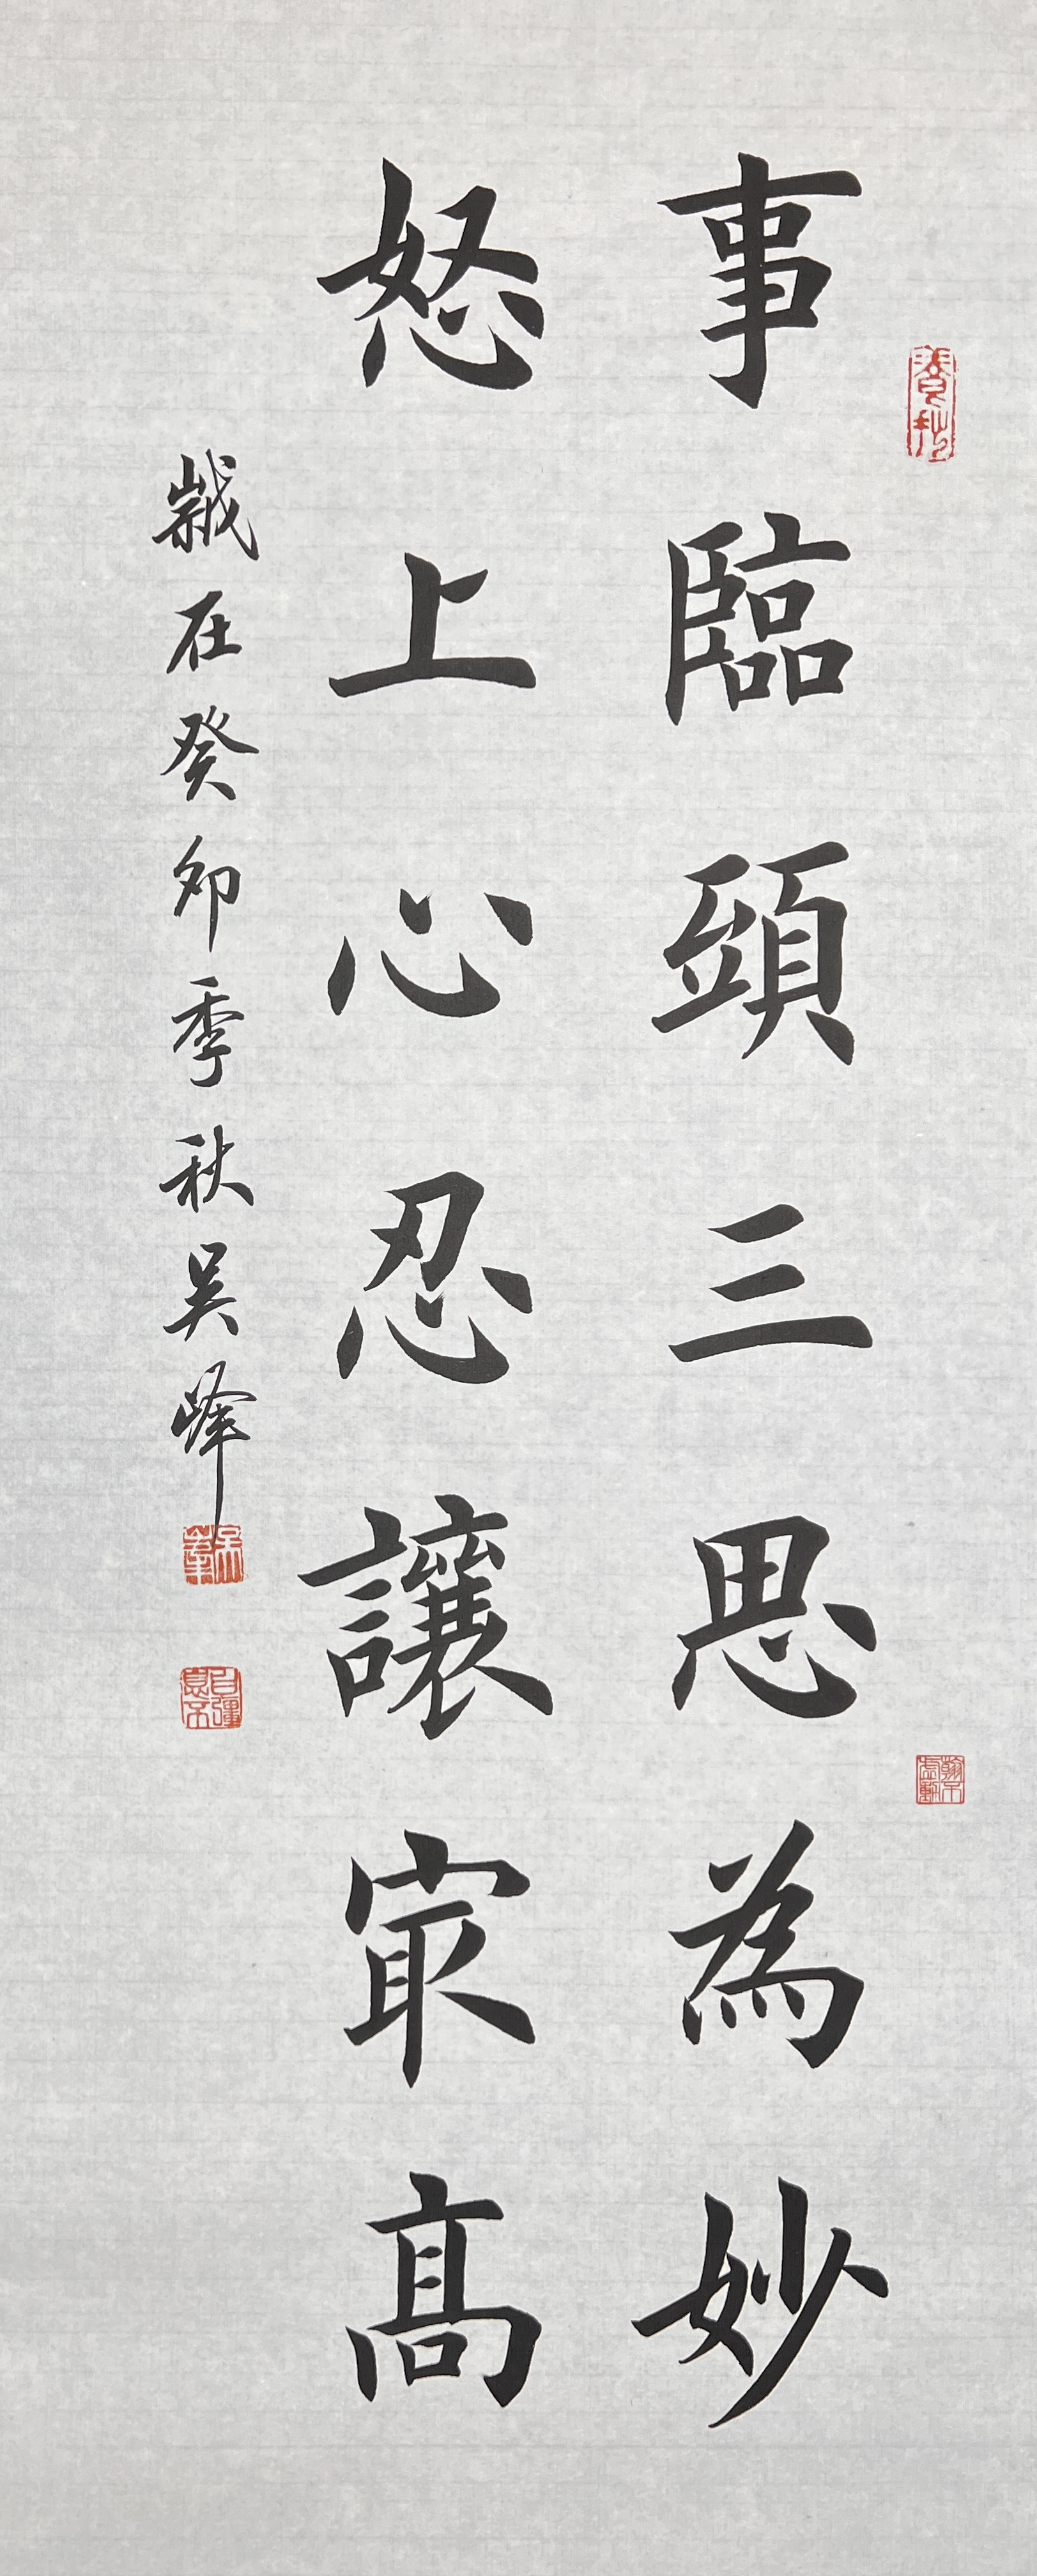 事臨頭三思為妙
怒上心忍讓冣高
歲在癸卯季秋吳峰
自彊不息